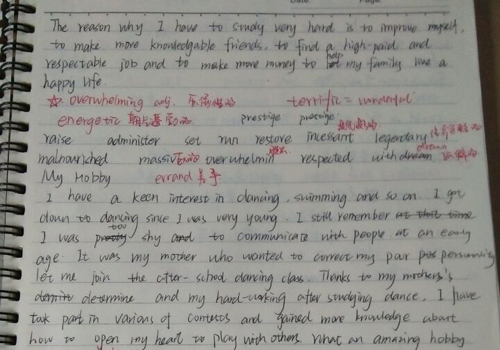 The reason why I have to study very hard is to improve myself,
to make more knowledgable friends, to find a high-paid and
respectable job and to make more money to help my family live a
happy life.
☆ overwhelming adj. terrific = wonderful
energetic prestige prestige
raise administer set run restore incessant legendary
malnourished massive overwhelmin respected withdrawn
My Hobby errand 差事
I have a keen interest in dancing, swimming and so on. I got
down to dancing since I was very young. I still remember at that time
I was pretty too shy and to communicate with people at an early
age. It was my mother who wanted to correct my poor personality
let me join the after-school dancing class. Thanks to my mother's
determine and my hard-working after studying dance, I have
took part in varions of contests and gained more knowledge about
how to open my heart to play with others. What an amazing hobby